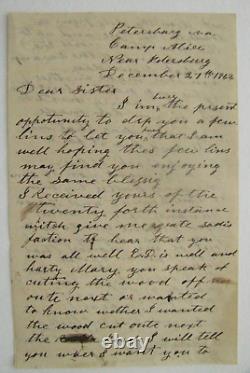 Petersburg va.
Camp Alice
Near Petersburg
December 27th 186
Dear Sister
I im, the present
opportunity to drp you a few
lins to let you that I am
well hoping thes few lins
may find you enjoying
the same blessig
I Received yours of the
twenty forth instance
witch give me grate sadis
faction to hear that you
was all well is well and
harty Mary, you speak of
cuting the wood off
oute next or wanted
to know wether I wanted
the wood cut oute next
the I will tell
you when I want you to